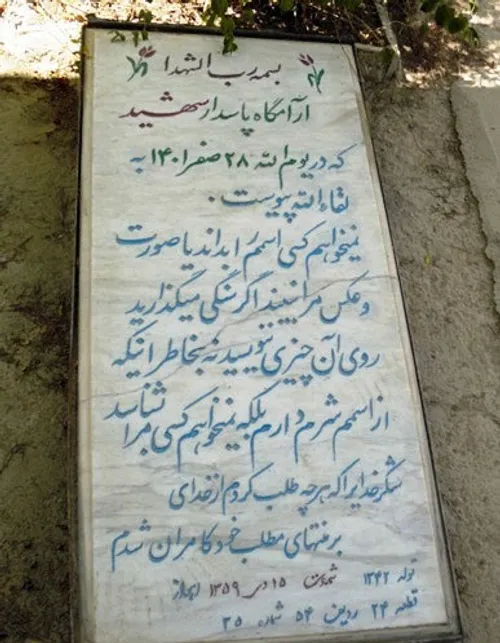 بسمه رب الشهدا
آرامگاه پاسدار شهید
که در یوم الله ۲۸ صفر ۱۴۰۱ به
لقاءالله پیوست.
نمیخواهم کسی اسمم را بداند یا صورت
و عکس مرا ببیند اگر سنگی میگذارید
روی آن چیزی ننویسید نه بخاطر اینکه
از اسمم شرم دارم بلکه نمیخواهم کسی مرا بشناسد
شکر خدایرا که هر چه طلب کردم از خدای
بر منتهای مطلب خود کامران شدم
تولد ۱۳۴۲ شهادت ۱۵ دی ۱۳۵۹ اهواز
قطعه ۲۴ ردیف ۵۴ شماره ۲۵